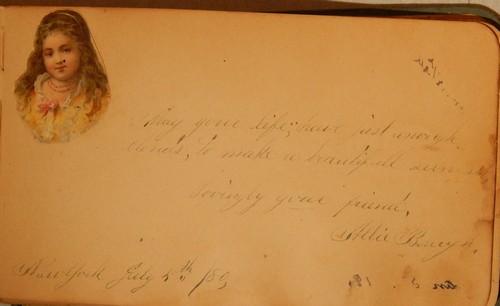 May your life, have just enough
clouds, to make a beautiful sun
Lovingly your friend,
Allie
New York July 5th /89